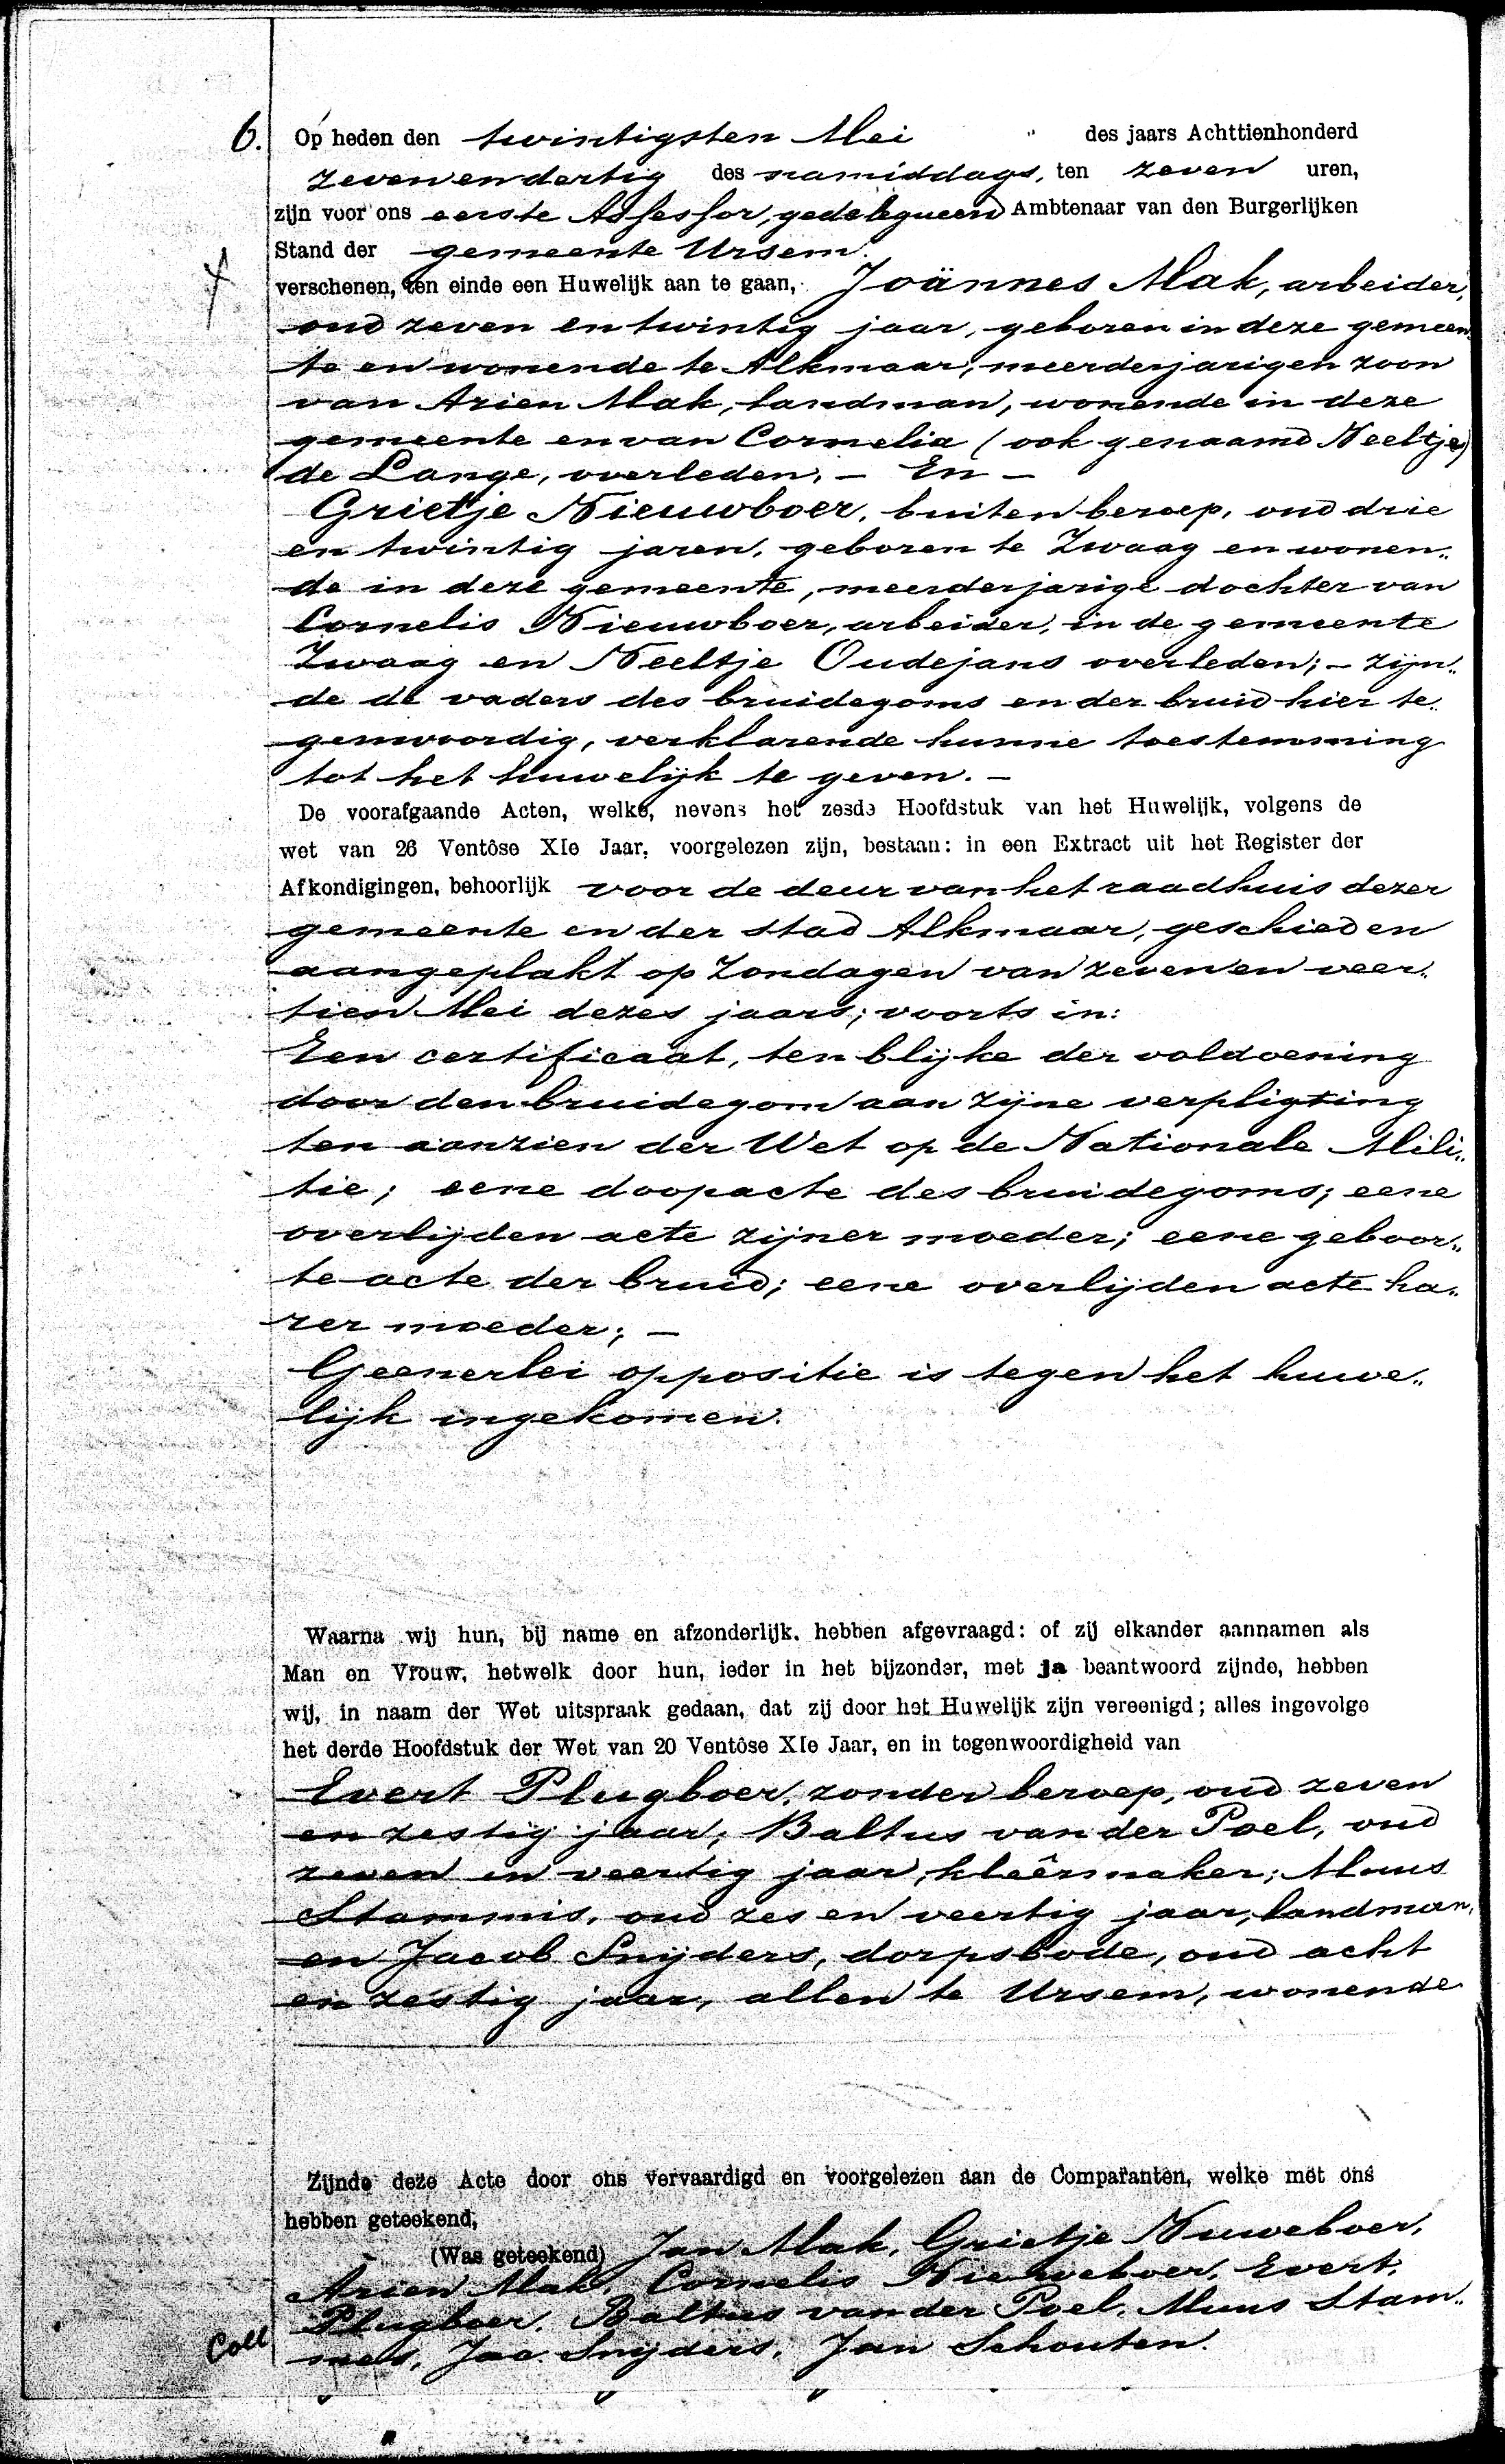 6. Op heden den twintigsten Mei " des jaars Achttienhonderd
zeven en dertig des namiddags, ten zeven uren,
zijn voor ons eerste Assessor, gedelegueerd Ambtenaar van den Burgerlijken
Stand der gemeente Ursem.
verschenen, ten einde een Huwelijk aan te gaan, Joännes Mak, arbeider,
oud zeven en twintig jaar, geboren in deze gemeen„
te en wonende te Alkmaar, meerderjarigen zoon
van Arien Mak, landman, wonende in deze
gemeente en van Cornelia (ook genaamd Neeltje)
de Lange, overleden. — En —
Grietje Nieuwboer, buiten beroep, oud drie
en twintig jaren, geboren te Zwaag en wonen„
de in deze gemeente, meerderjarige dochter van
Cornelis Nieuwboer, arbeider, in de gemeente
Zwaag en Neeltje Oudejans overleden; — zijn„
de de vaders des bruidegoms en der bruid hier te„
genwoordig, verklarende hunne toestemming
tot het huwelijk te geven. —
De voorafgaande Acten, welke, nevens het zesde Hoofdstuk van het Huwelijk, volgens de
wet van 26 Ventôse XIe Jaar, voorgelezen zijn, bestaan: in een Extract uit het Register der
Afkondigingen, behoorlijk voor de deur van het raadhuis dezer
gemeente en der stad Alkmaar, geschied en
aangeplakt op Zondagen van zeven en veer„
tien Mei dezes jaars; voorts in:
Een certificaat, ten blijke der voldoening
door den bruidegom aan zijne verpligting
ten aanzien der Wet op de Nationale Mili„
tie; eene doopacte des bruidegoms; eene
overlijden acte zijner moeder; eene geboor„
te acte der bruid; eene overlijden acte ha„
rer moeder; —
Geenerlei oppositie is tegen het huwe„
lijk ingekomen.
Waarna wij hun, bij name en afzonderlijk, hebben afgevraagd: of zij elkander aannamen als
Man en Vrouw, hetwelk door hun, ieder in het bijzonder, met ja beantwoord zijnde, hebben
wij, in naam der Wet uitspraak gedaan, dat zij door het Huwelijk zijn vereenigd; alles ingevolge
het derde Hoofdstuk der Wet van 20 Ventôse XIe Jaar, en in tegenwoordigheid van
Evert Plugboer, zonder beroep, oud zeven
en zestig jaar; Baltus van der Poel, oud
zeven en veertig jaar, kleêrmaker; Muus
Stammis, oud zes en veertig jaar, landman,
en Jacob Snijders, dorpsbode, oud acht
en zestig jaar, allen te Ursem, wonende
Zijnde deze Acte door ons vervaardigd en voorgelezen aan de Comparanten, welke met ons
hebben geteekend,
(Was geteekend) Jan Mak, Grietje Nuweboer,
Arien Mak, Cornelis Nieweboer, Evert
Plugboer, Baltus van der Poel, Muus Stam„
mes, Jac. Snijders, Jan Schouten.
Coll